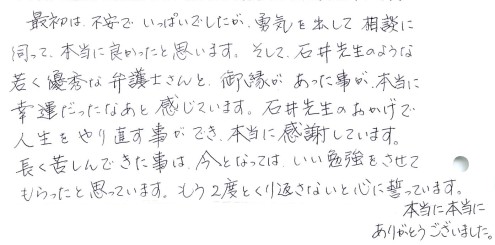 最初は、不安でいっぱいでしたが、勇気を出して相談に
伺って、本当に良かったと思います。そして、石井先生のような
若く優秀な弁護士さんと、御縁があった事が、本当に
幸運だったなあと感じています。石井先生のおかげで
人生をやり直す事ができ、本当に感謝しています。
長く苦しんできた事は、今となっては、いい勉強をさせて
もらったと思っています。もう2度とくり返さないと心に誓っています。
本当に本当に
ありがとうございました。